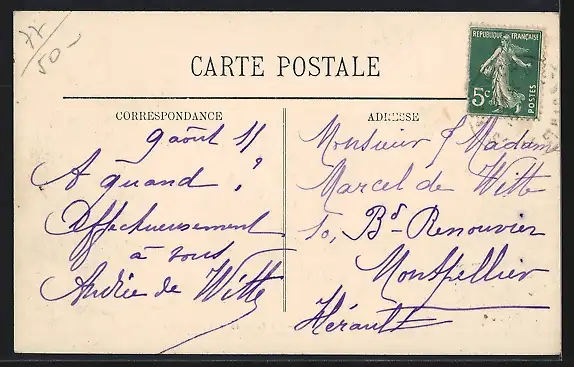 77
50-
RÉPUBLIQUE FRANÇAISE
5c
POSTES
CARTE POSTALE
CORRESPONDANCE
9 août 11
A quand ?
Affectueusement
à vous
Andrée de Witte
ADRESSE
Monsieur & Madame
Marcel de Witte
10, Bd- Renouvier
Montpellier
Hérault